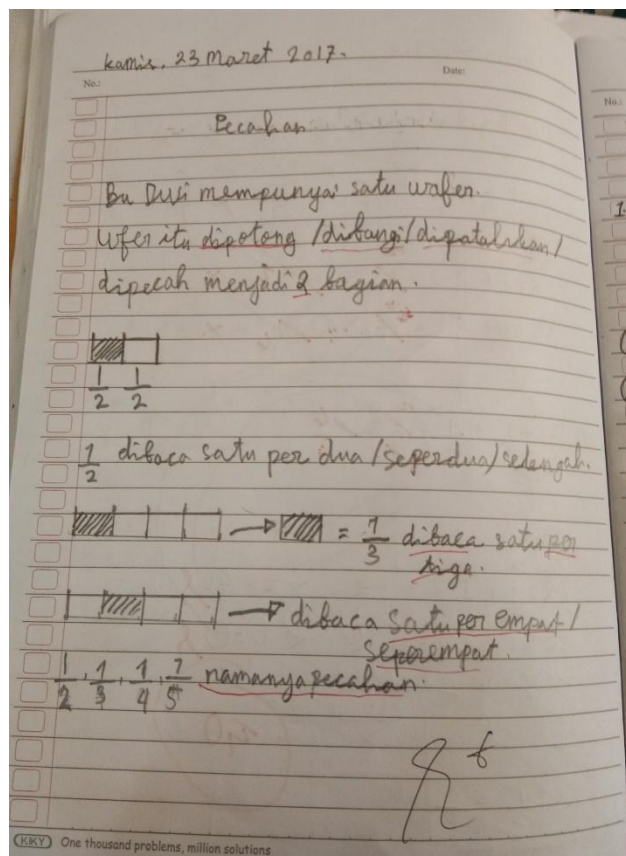 kamis, 23 maret 2017.
No.:
Date:
Pecahan
Bu Dwi mempunyai satu wafer.
Wfer itu dipotong /dibangi/dipatahkan/
dipecah menjadi 2 bagian.
1/2 1/2
1/2 dibaca satu per dua/seperdua/setengah.
= 1/3 dibaca satu per
tiga.
dibaca satu per empat/
seperempat.
1/2, 1/3, 1/4, 1/5 namanya pecahan.
KIKY One thousand problems, million solutions
No.:
1.